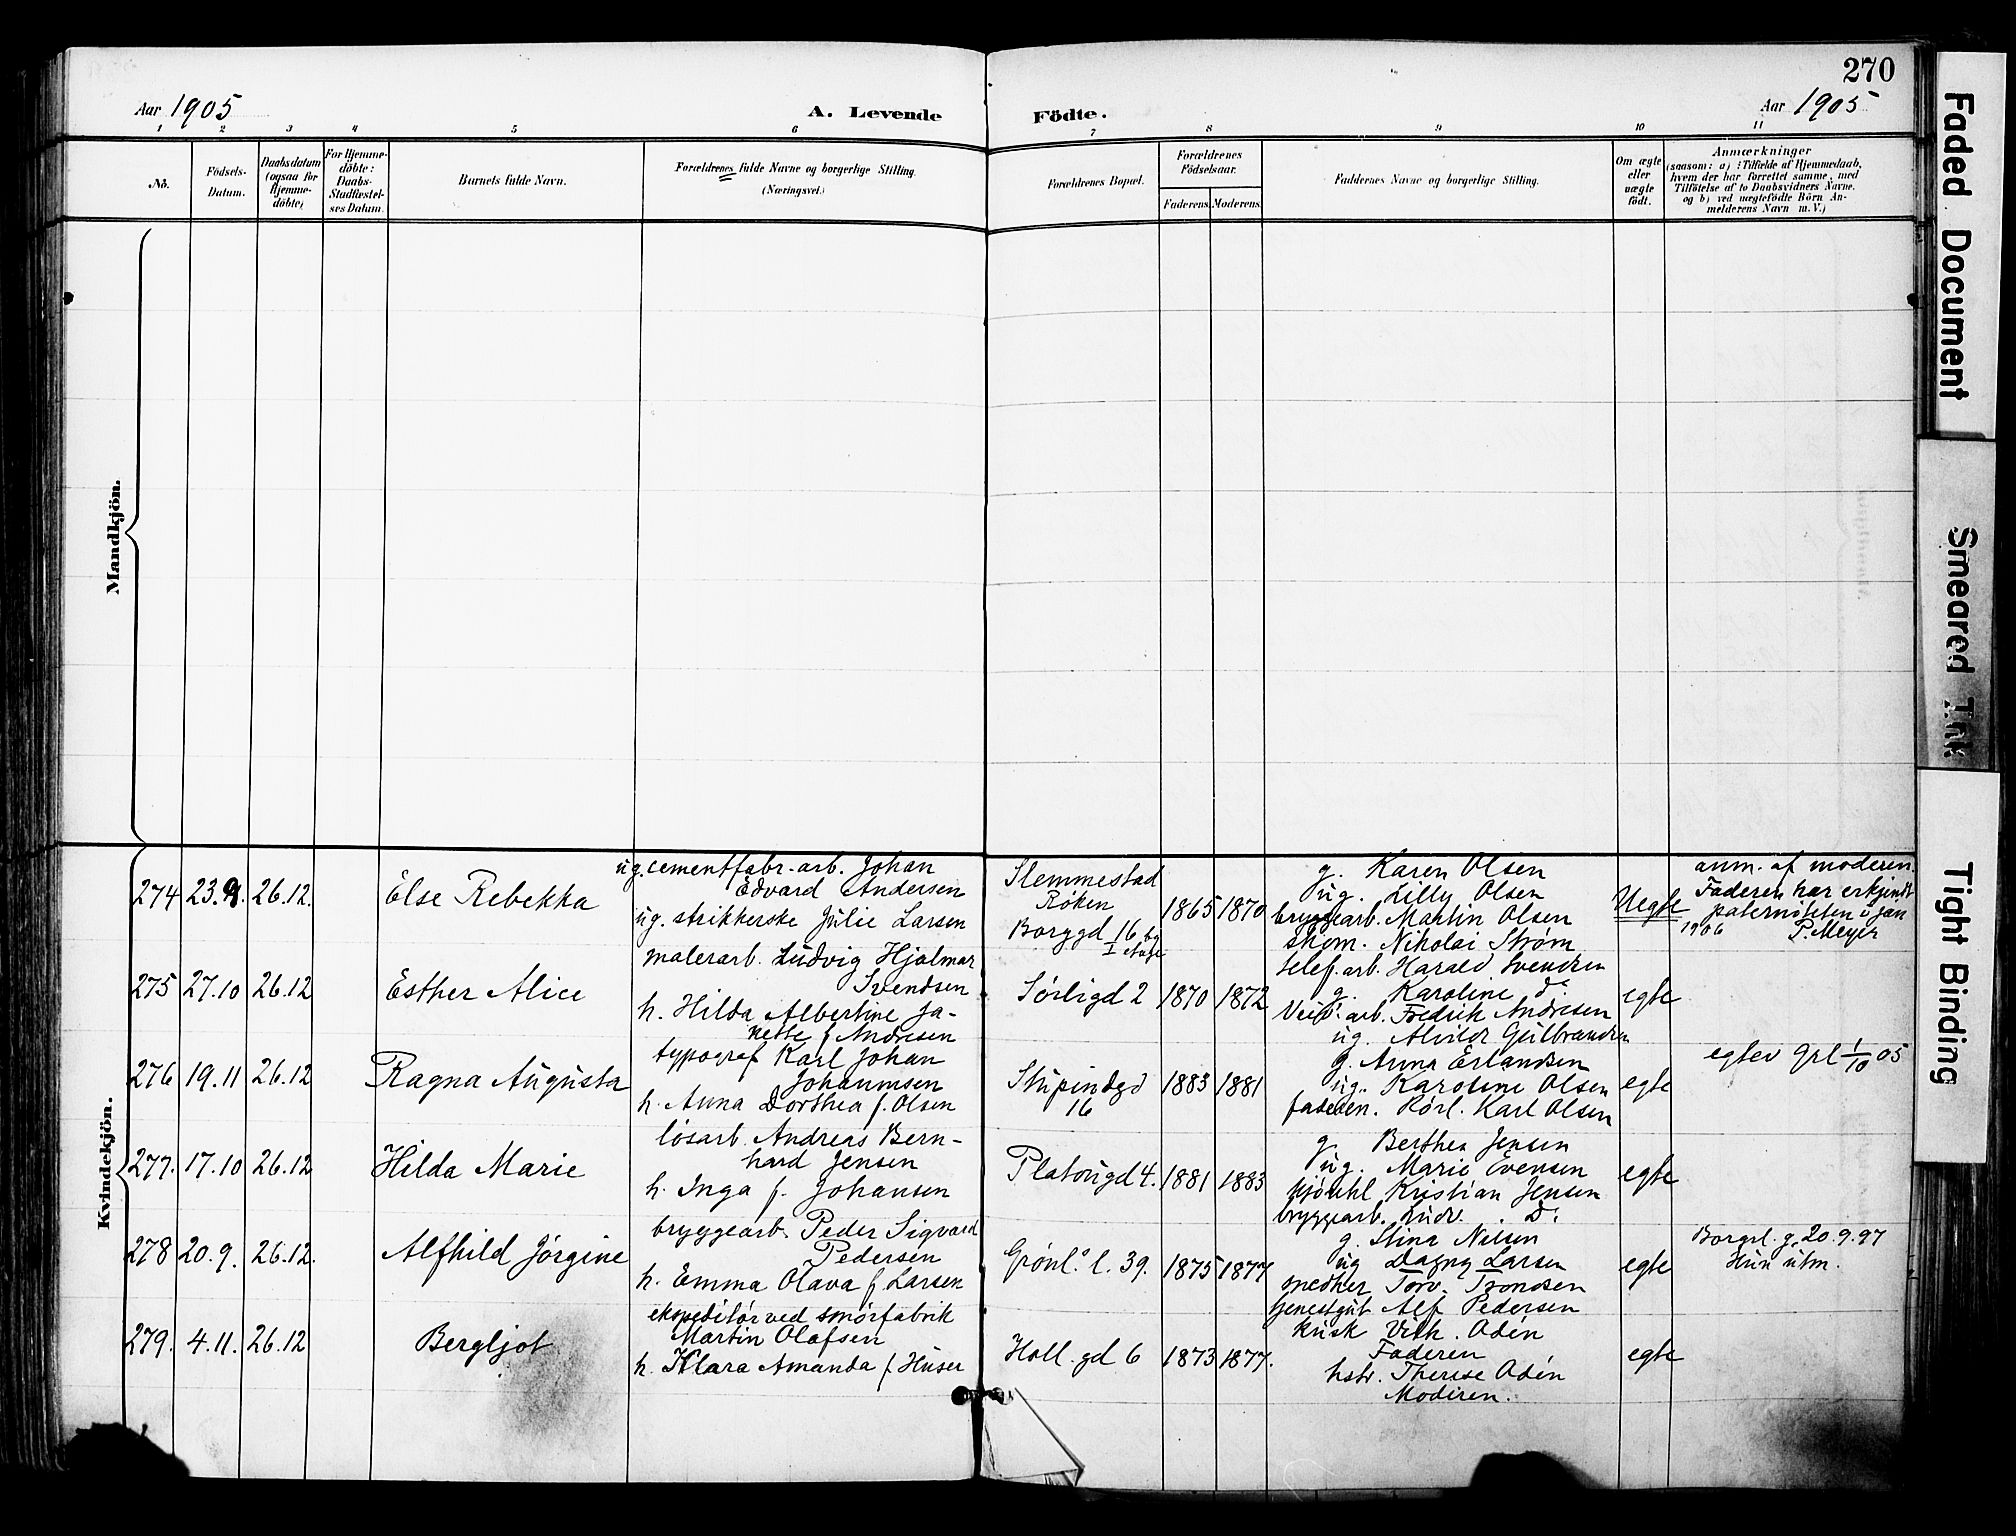 270
Aar 1905
A. Levende Födte.
Aar 1905
1 2 3 4 5 6 7 8 9 10 11
No.
Födsels-
Datum.
Daabsdatum
(ogsaa for
Hjemme-
döbte)
For Hjemme-
döbte:
Daabs-
Stadfæstel-
ses Datum.
Barnets fulde Navn.
Forældrenes fulde Navne og borgerlige Stilling.
(Næringsvei.)
Forældrenes Bopæl.
Forældrenes
Födselsaar.
Faderens. Moderens.
Faddernes Navne og borgerlige Stilling.
Om ægte
eller
uægte
födt.
Anmærkninger
(saasom: a) i Tilfælde af Hjemmedaab,
hvem der har forrettet samme, med
Tilföielse af to Daabsvidners Navne.
og b) ved uægtefödte Börn An-
melderens Navn m. V.)
Mandkjön.
Kvindekjön.
274 23.9. 26.12.
Else Rebekka
ug. cementfabr. arb. Johan
Edvard Andersen
ug. strikkerske Julie Larsen
Slemmestad
Røken
Borggd 16 bg
I etage
1865 1870
g. Karen Olsen
ug. Lilly Olsen
bryggearb. Martin Olsen
skom. Nikolai Strøm
Uegte
anm. af moderen.
Faderen har erkjendt
paterniteten i jan
1906 P. Meyer
275 27.10 26.12
Esther Alice
malerarb. Ludvig Hjalmar
Svendsen
h. Hilda Albertine Ja-
nette f. Andresen
Sørligd 2
1870 1872
telef. arb. Harald Svendsen
g. Karoline do
Veiv. arb. Fredrik Andresen
ug. Alvilde Gulbrandsen
egte
276 19.11 26.12
Ragna Augusta
typograf Karl Johan
Johannsen
h. Anna Dorthea f. Olsen
Stupindgd
16
1883 1881
g. Anna Erlandsen
ug. Karoline Olsen
faderen. Rørl. Karl Olsen
egte
egtev Grl 1/10 05
277. 17.10 26.12
Hilda Marie
løsarb. Andreas Bern-
hard Jensen
h. Inga f. Johansen
Platougd 4.
1881 1883
g. Berthea Jensen
ug. Marie Evensen
Kristian Jensen
bryggearb. Ludv. do
egte
278 20.9. 26.12.
Alfhild Jørgine
bryggearb. Peder Sigvard
Pedersen
h. Emma Olava f Larsen
Grønl. l. 39.
1875 1877
g. Stina Nilsen
ug Dagny Larsen
snedker Torv. Trondsen
Alf Pedersen
egte
Borgrl. g. 20.9.97
Hun utm.
279. 4.11. 26.12
Bergljot
ekspeditør ved smørfabrik
Martin Olafsen
h. Klara Amanda f. Huser
Holl. gd 6
1873 1877.
kusk Vilh. Odén
Faderen
hstr. Therese Odén
Moderen.
egte
Faded Document
Smeared Ink
Tight Binding